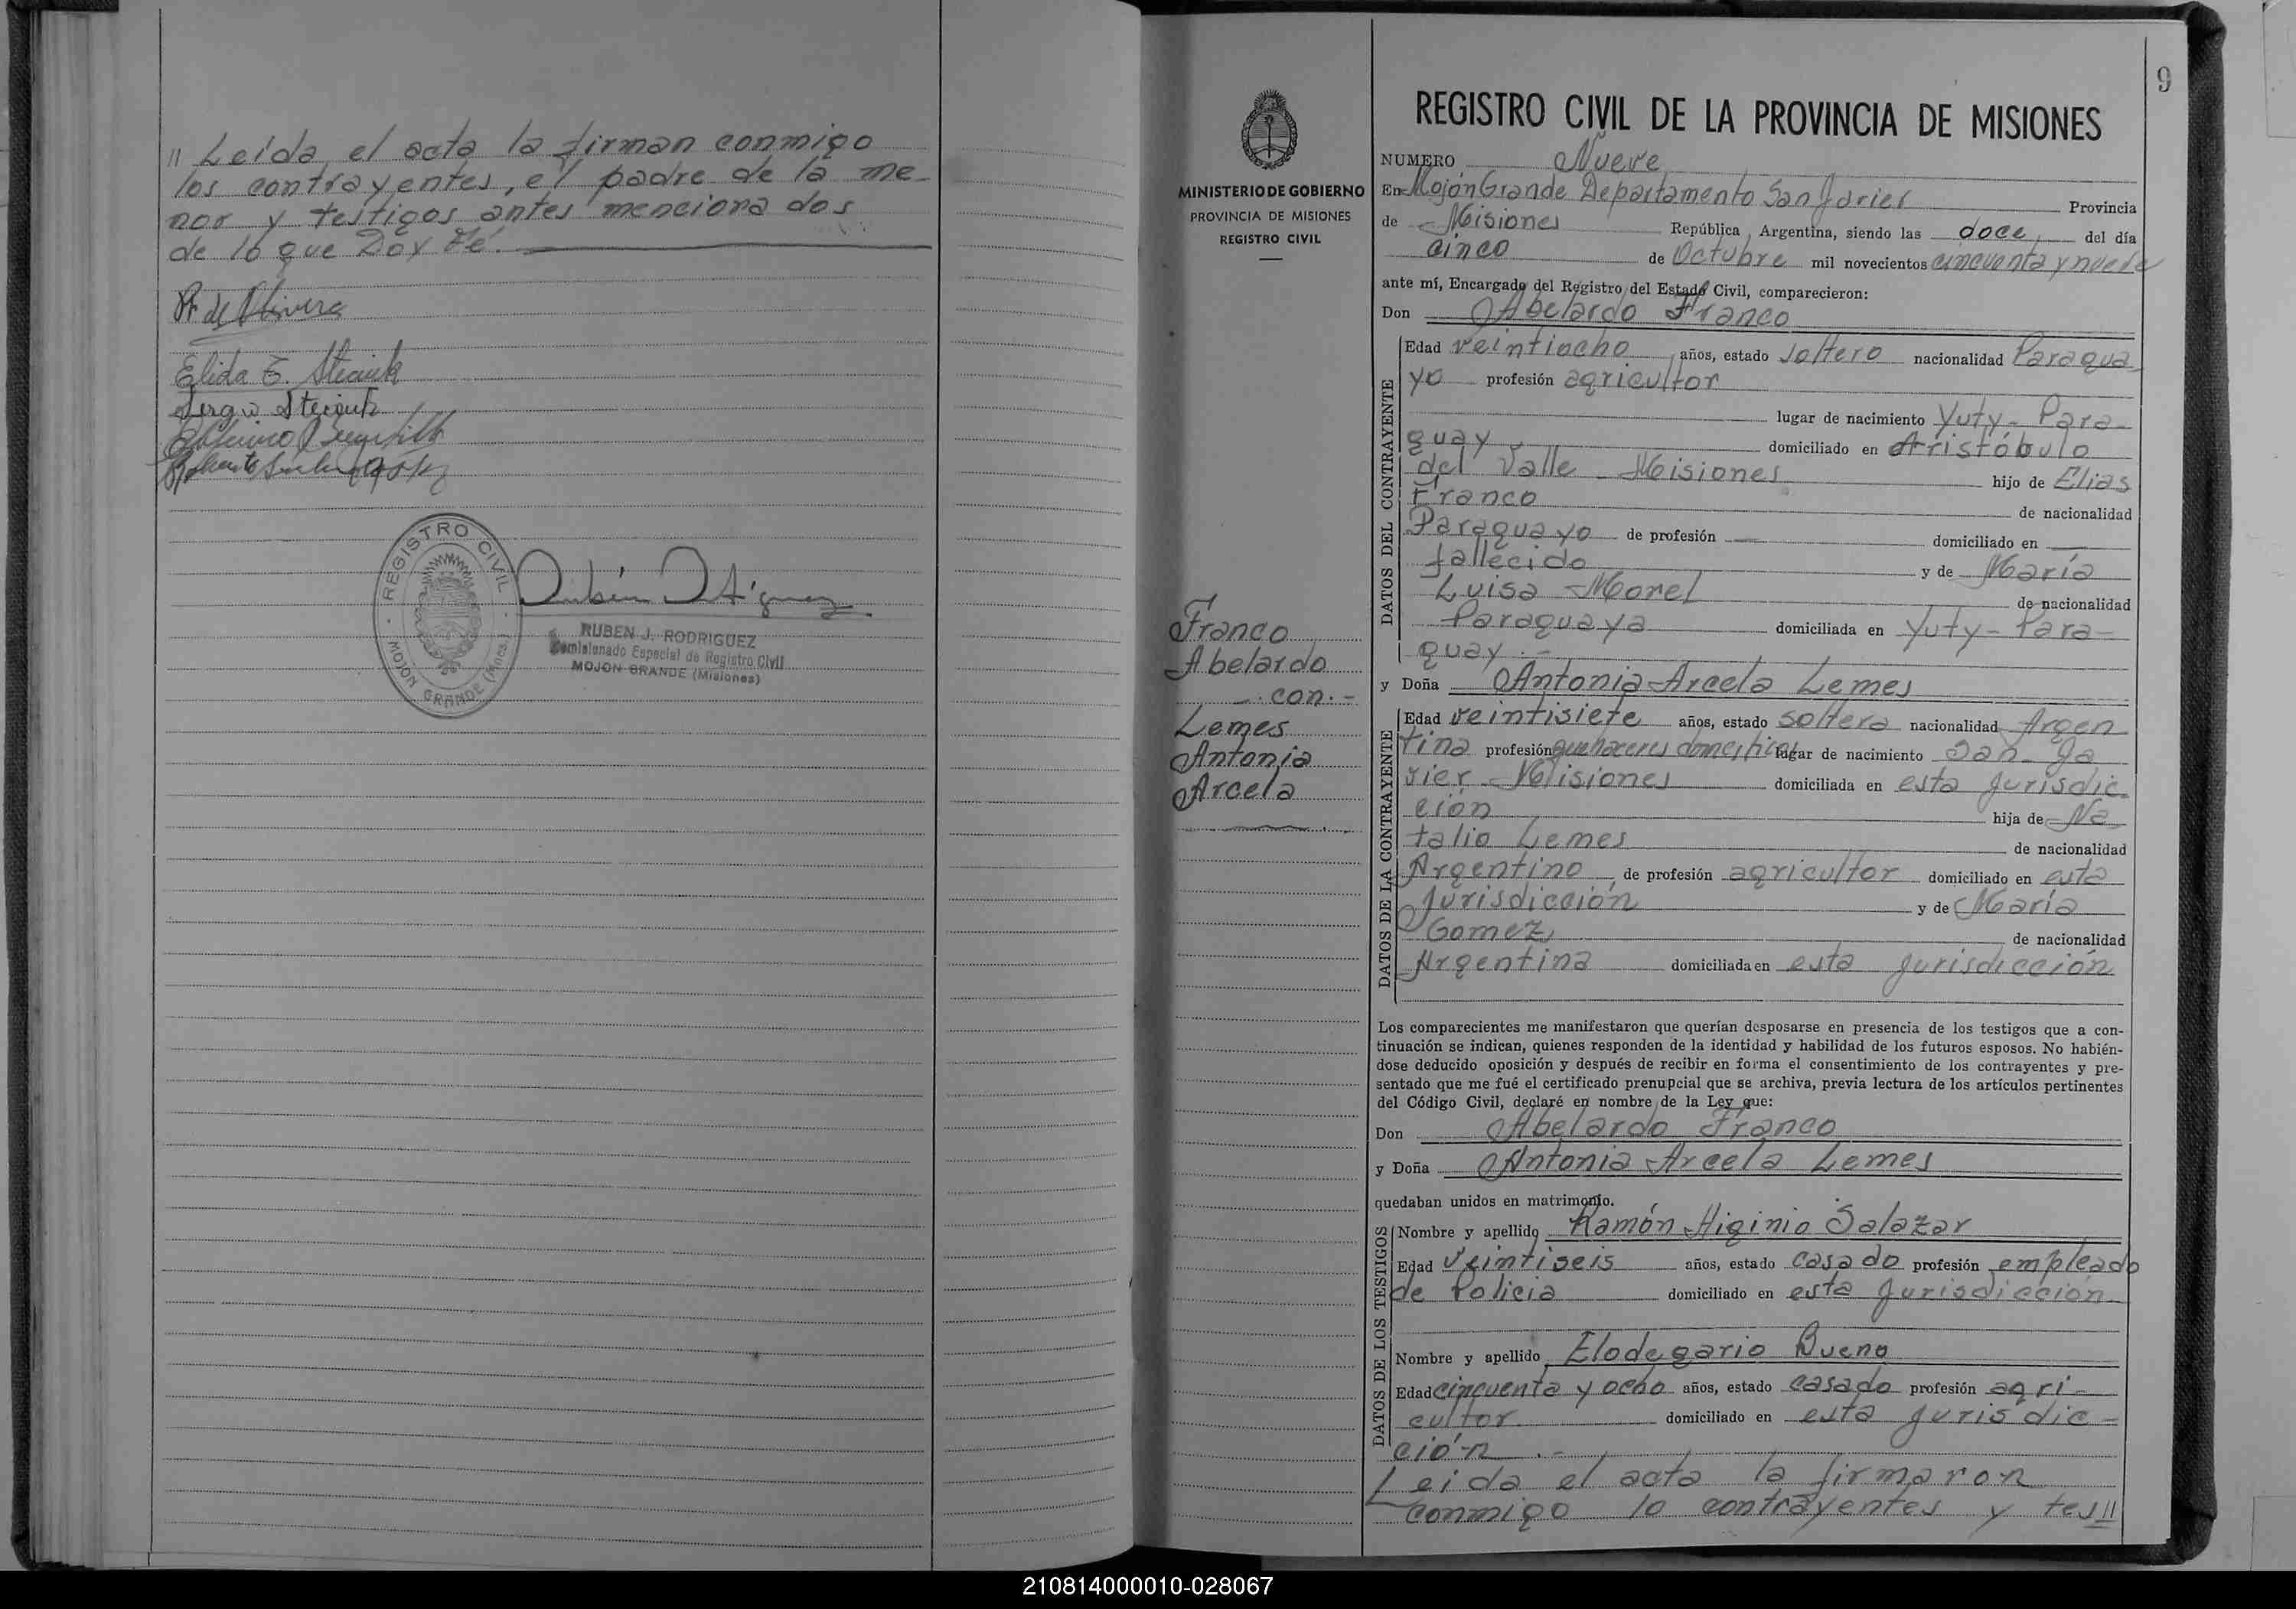 // Leída el acta la firman conmigo
los contrayentes, el padre de la me-
nor y testigos antes menciona dos
de lo que Doy Fé.
Elida E.
Sergio
REGISTRO CIVIL
MOJON GRANDE (Mnes)
RUBEN J. RODRIGUEZ
Comisionado Especial de Registro Civil
MOJON GRANDE (Misiones)
9
MINISTERIO DE GOBIERNO
PROVINCIA DE MISIONES
REGISTRO CIVIL
Franco
Abelardo
- con.-
Lemes
Antonia
Arcela
REGISTRO CIVIL DE LA PROVINCIA DE MISIONES
NUMERO Nueve
En Mojón Grande Departamento San Javier Provincia
de Misiones República Argentina, siendo las doce del día
cinco de Octubre mil novecientos cincuenta y nueve
ante mí, Encargado del Registro del Estado Civil, comparecieron:
Don Abelardo Franco
DATOS DEL CONTRAYENTE
Edad veintiocho años, estado soltero nacionalidad Paragua-
yo profesión agricultor
lugar de nacimiento Yuty - Para-
guay domiciliado en Aristóbulo
del Valle - Misiones hijo de Elias
Franco de nacionalidad
Paraguayo de profesión — domiciliado en —
fallecido y de María
Luisa Morel de nacionalidad
Paraguaya domiciliada en Yuty - Para-
guay.-
y Doña Antonia Arcela Lemes
DATOS DE LA CONTRAYENTE
Edad veintisiete años, estado soltera nacionalidad Argen
tina profesión quehaceres domésticos lugar de nacimiento San Ja
vier - Misiones domiciliada en esta jurisdic-
ción hija de Na
talio Lemes de nacionalidad
Argentino de profesión agricultor domiciliado en esta
Jurisdicción y de María
Gomez de nacionalidad
Argentina domiciliada en esta jurisdicción
Los comparecientes me manifestaron que querían desposarse en presencia de los testigos que a con-
tinuación se indican, quienes responden de la identidad y habilidad de los futuros esposos. No habién-
dose deducido oposición y después de recibir en forma el consentimiento de los contrayentes y pre-
sentado que me fué el certificado prenupcial que se archiva, previa lectura de los artículos pertinentes
del Código Civil, declaré en nombre de la Ley que:
Don Abelardo Franco
y Doña Antonia Arcela Lemes
quedaban unidos en matrimonio.
DATOS DE LOS TESTIGOS
Nombre y apellido Ramón Higinio Salazar
Edad veintiseis años, estado casado profesión empleado
de Policia domiciliado en esta jurisdicción
Nombre y apellido Elodegario Bueno
Edad cincuenta y ocho años, estado casado profesión agri-
cultor domiciliado en esta jurisdic-
ción.-
Leida el acta la firmaron
conmigo lo contrayentes y tes//
210814000010-028067